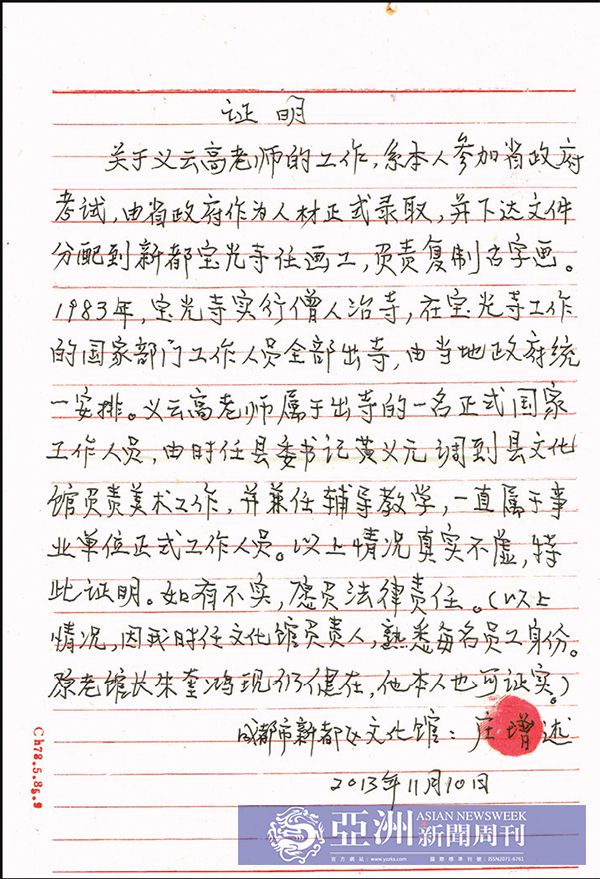 证明
关于义云高老师的工作，系本人参加省政府
考试，由省政府作为人材正式录取，并下达文件
分配到新都宝光寺任画工，负责复制古字画。
1983年，宝光寺实行僧人治寺，在宝光寺工作
的国家部门工作人员全部出寺，由当地政府统
一安排。义云高老师属于出寺的一名正式国家
工作人员，由时任县委书记黄义元调到县文化
馆负责美术工作，并兼任辅导教学，一直属于事
业单位正式工作人员。以上情况真实不虚，特
此证明。如有不实，愿负法律责任。（以上
情况，因我时任文化馆负责人，熟悉每名员工身份。
原老馆长朱奎鸿现仍健在，他本人也可证实。）
成都市新都区文化馆：庄增述
2013年11月10日
Ch78.5.85.9
亞洲 ASIAN NEWSWEEK
新聞周刊
官方網站：www.yzzks.com 國際標準刊號：ISSN2071-6761